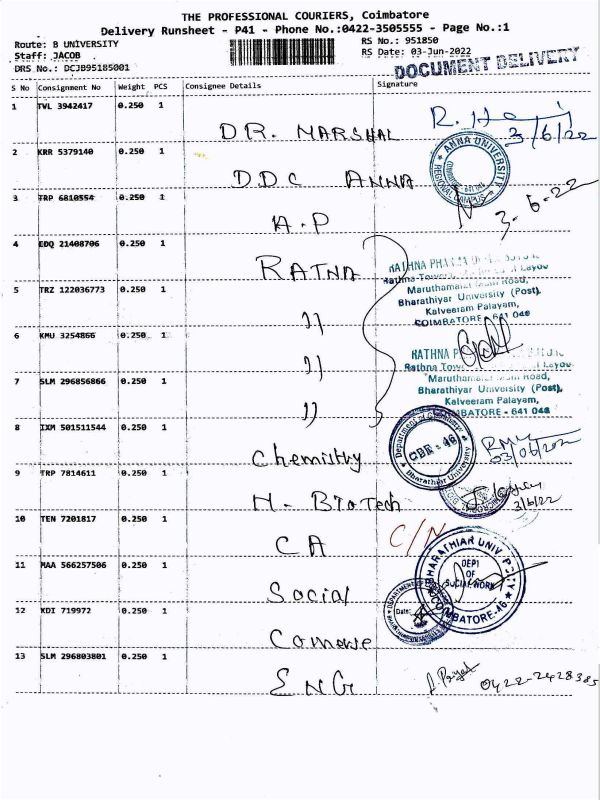 THE PROFESSIONAL COURIERS, Coimbatore
Delivery Runsheet - P41 - Phone No.:0422-3505555 - Page No.:1
Route: B UNIVERSITY
RS No.: 951850
Staff: JACOB
RS Date: 03-Jun-2022
DRS No.: DCJB95185001
DOCUMENT DELIVERY
S No Consignment No Weight PCS Consignee Details Signature
1 TVL 3942417 0.250 1
DR. MARSHAL
R. 
3/6/22
2 KRR 5379140 0.250 1
DDC ANNA
ANNA UNIVERSITY
REGIONAL CAMPUS
3 TRP 6810554 0.250 1
A.P
3-6-22
4 EDQ 21408706 0.250 1
RATNA
RATHNA
Maruthamalai Main Road,
Bharathiyar University (Post),
Kalveeram Palayam,
COIMBATORE - 641 046
5 TRZ 122036773 0.250 1
"
6 KMU 3254866 0.250 1
"
RATHNA
Rathna
Maruthamalai Main Road,
Bharathiyar University (Post),
Kalveeram Palayam,
COIMBATORE - 641 046
7 SLM 296856866 0.250 1
"
8 IXM 501511544 0.250 1
Chemistry
Department of Chemistry
CBE - 46
Bharathiar University
03/06/2022
9 TRP 7814611 0.250 1
M. BioTech
3/6/22
10 TEN 7201817 0.250 1
CA
C/N
11 MAA 566257506 0.250 1
Social
BHARATHIAR UNIVERSITY
DEPT
OF
SOCIAL WORK
COIMBATORE-46
12 KDI 719972 0.250 1
Date:
13 SLM 296803801 0.250 1
ENG
0422-2428385